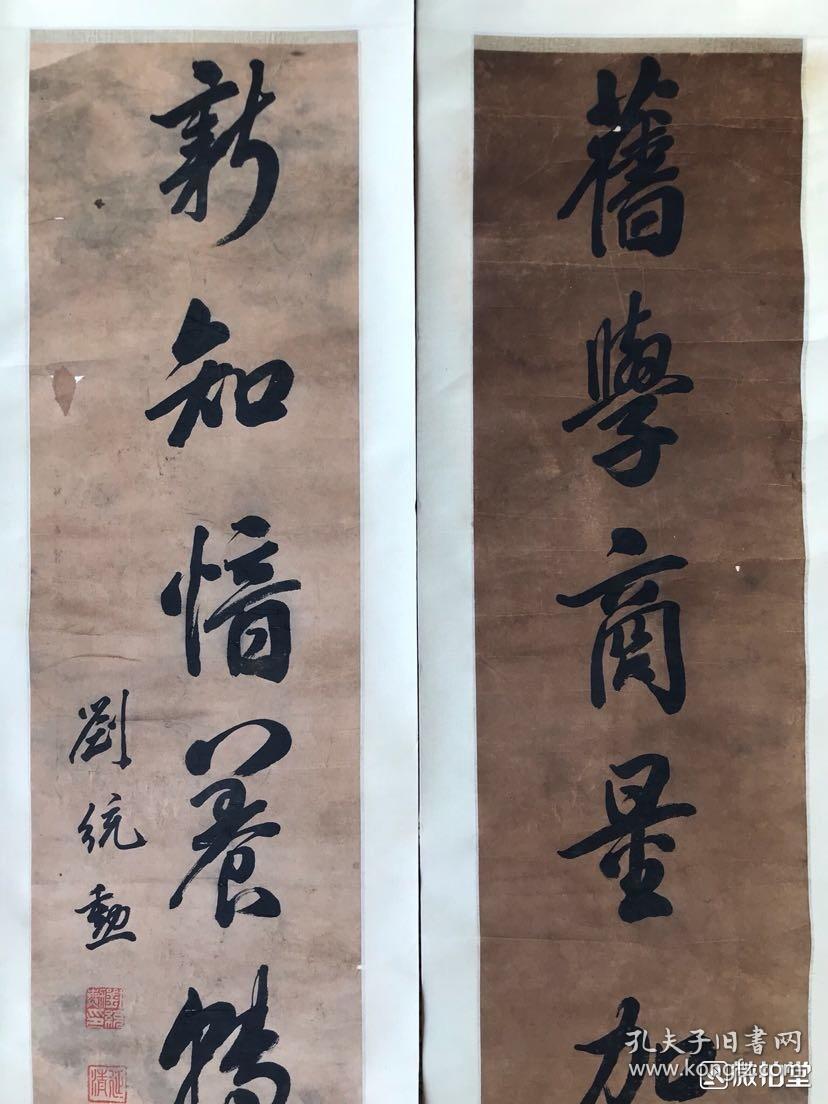 舊學商量加
新知愔養轉
劉統勳
延清
孔夫子旧书网
微拍堂